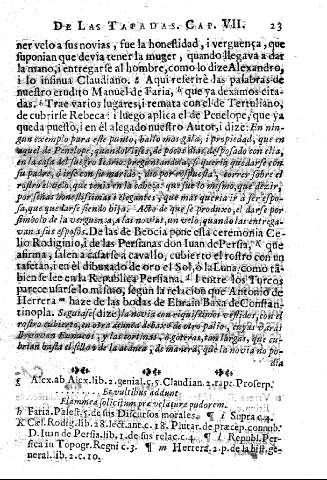 DE LAS TAPADAS. CAP. VII. 23
ner velo a sus novias, fue la honestidad, i verguença, que
suponian que devia tener la muger, quando llegava a dar
la mano, i entregarse al hombre, como lo dize Alexandro,
i lo insinua Claudiano. g Aqui referirè las palabras de
nuestro erudito Manuel de Faria, h que ya dexamos cita-
das. Trae varios lugares, i remata con el de Tertuliano,
de cubrirse Rebeca: i luego aplica el de Penelope, que ya
queda puesto, i en èl alegado nuestro Autor, i dize: En nin-
gun exemplo para este punto, hallo mas gala, i propriedad, que en
aquel de Penelope, quando Vlises,
en la casa del suegro Icario: preguntandola, si queria quedarse con
su padre, ò irse con su marido, dio por respuesta, correr sobre el
rostro el velo, que tenia en la cabeça: que fue lo mismo, que dezir,
por señas honestissimas i elegantes, que mas queria ir a ser espo-
sa, que quedarse siendo hija. Acto de que se produze, el darse por
simbolo de la verguença, a las novias, un velo, quando las entrega-
van a sus esposos. De las de Beocia pone esta ceremonia Ce-
lio Rodiginio, i de las Persianas don Iuan de Persia, k que
afirma, salen a casarse a cavallo, cubierto el rostro con un
tafetan, i en èl dibuxado de oro el Sol, ò la Luna, como tã-
bien se lee en la Republica Persiana. l I entre los Turcos
parece usarse lo mismo, segun la relacion que Antonio de
Herrera m haze de las bodas de Ebrain Baxa de Constan-
tinopla. Seguiase (dize) la novia con riquissimos vestidos, con el
rostro cubierto, en otra debaxo de otro palio, cuyas varas
llevavan Eunucos, i las cortinas, ò goteras, tan largas, que cu-
brian hasta el sillon de la acanea, de manera, que la novia no po-
dia
g Alex. ab Alex. lib. 2. genial. c. 5. Claudian. 2. rapt. Proserp.
..... Et vultibus addunt
Flammea sollicitum præ velatura pudorem.
h Faria. Palest. 5. de sus Discursos morales. ¶ i Supra c. 4.
K Cæl. Rodig. lib. 28. lect. ant. c. 18. Plutar. de præcep. connub.
D. Iuan de Persia lib. 1. de sus relac. c. 4. ¶ l Republ. Per-
sica in Topogr. Regni c. 3. ¶ m Herrera 2. p. de la hist. ge-
neral. lib. 2. c. 10.